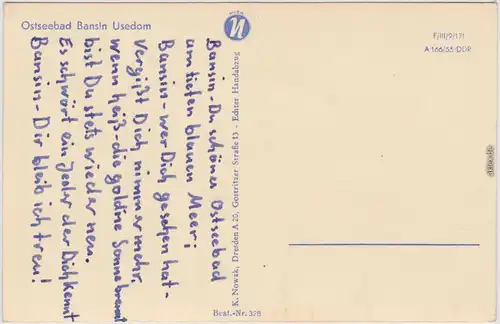 Ostseebad Bansin Usedom
Bansin - Du schönes Ostseebad
am tiefen blauen Meer;
Bansin - wer Dich gesehen hat -
Vergißt Dich nimmermehr.
wenn heiß - die goldne Sonne brennt
bist Du stets wieder neu.
Es schwört ein Jeder der Dich kennt
Bansin - Dir bleib ich treu!
K. Nowak, Dresden A 20, Gostritzer Straße 13 - Echter Handabzug
Best.-Nr. 328
F/III/9/171
A 166/55 DDR